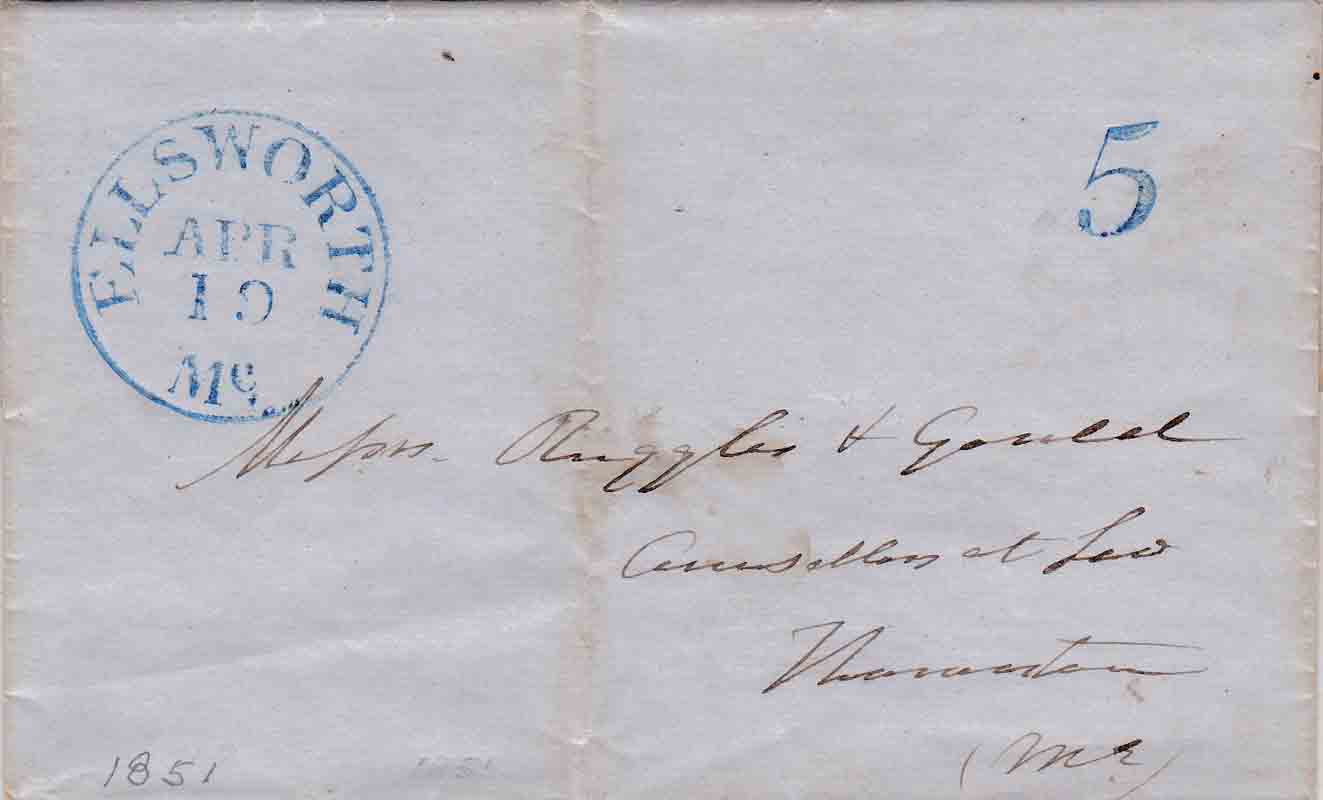 ELLSWORTH
APR
19
Me.
5
Messrs. Ruggles & Gould
Counsellors at Law
Thomaston
(Me)
1851
1851